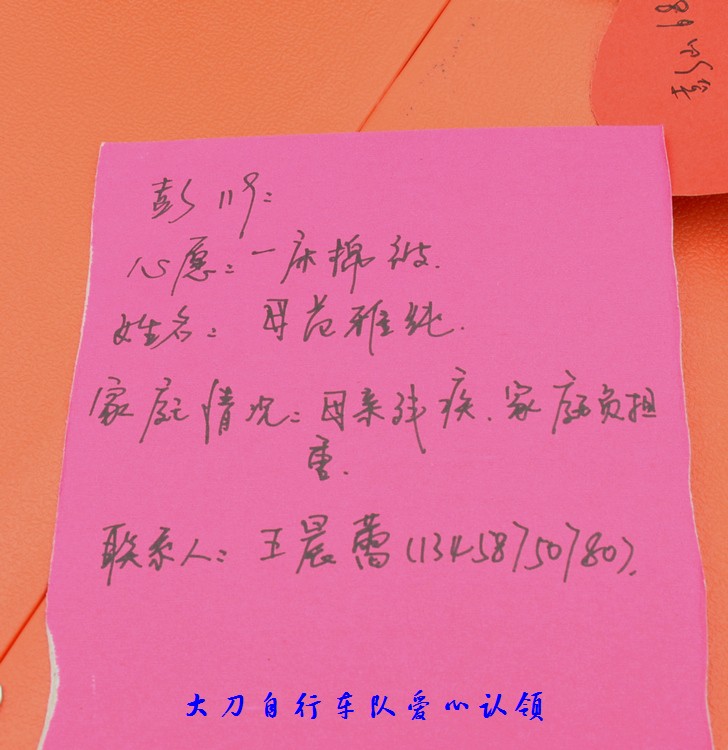 89的笑
彭119:
心愿:一床棉被.
姓名:母范雅纯.
家庭情况:母亲残疾.家庭负担
重.
联系人:王晨蕾(13458750780).
大刀自行车队爱心认领